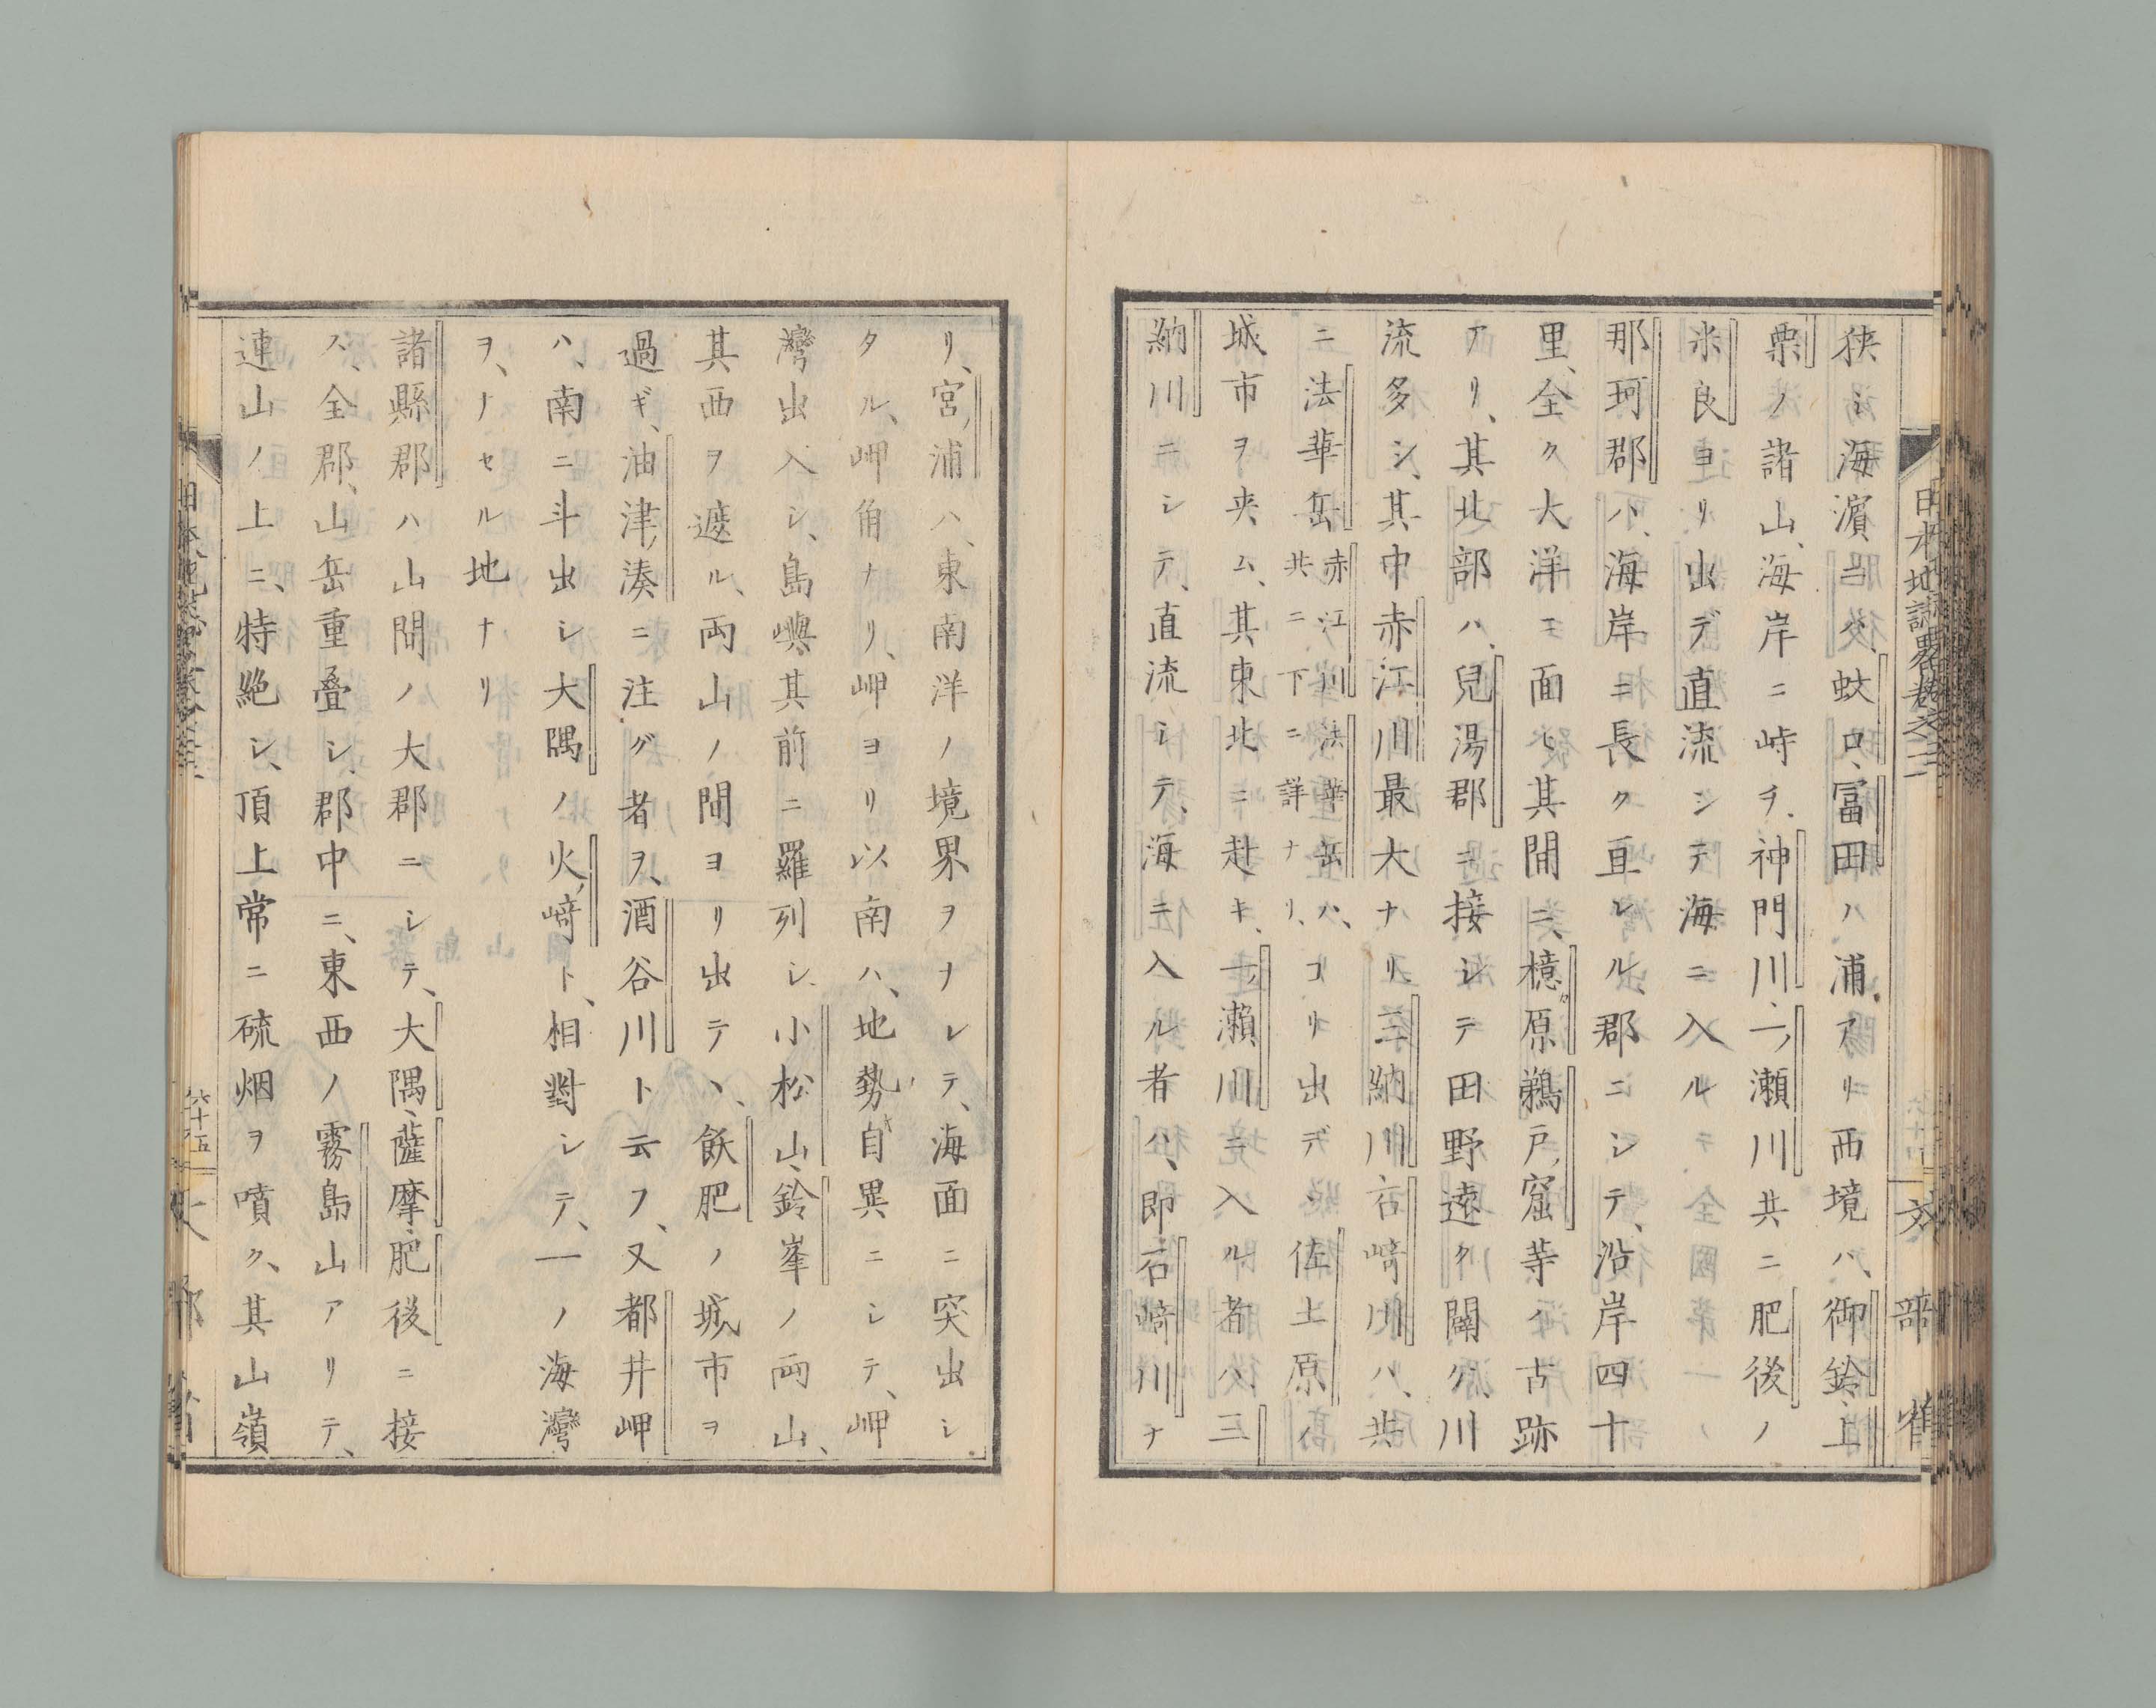 日本地誌略卷之三
文部省
狹シ海濱ニ、蚊口、富田ハ浦アリ西境ハ、御鈴、上
栗ノ諸山、海岸ニ峙ヲ、神門川、一ノ瀬川共ニ肥後ノ
米良ヨリ出デ直流シテ海ニ入ル
那珂郡ハ、海岸ニ長ク亘レル、郡ニシテ、沿岸四十
里、全ク大洋ニ面シ其間ニ、檍原鵜戸ノ窟等ノ古跡
アリ、其北部ハ、兒湯郡ニ接シテ田野遠ク闢ケ、川
流多シ、其中赤江川最大ナリ三納川石崎川ハ、共
ニ法華岳赤江川法華岳ハ、共ニ下ニ詳ナリ、ヨリ出デ、佐土原ノ
城市ヲ夾ム、其東北ニ赴キ、一ノ瀬川ニ入ル者ハ、三
納川ニシテ、直流シテ、海ニ入ル者ハ、即石崎川ナ
リ、宮ノ浦ハ、東南洋ノ境界ヲナレテ、海面ニ突出シ
タル、岬角ナリ、岬ヨリ以南ハ、地勢自異ニシテ、岬
灣出入シ、島嶼其前ニ羅列シ、小松山、鈴峯ノ両山、
其西ヲ遮ル、両山ノ間ヨリ出テヽ、飫肥ノ城市ヲ
過ギ、油津ノ湊ニ注グ者ヲ、酒谷川ト云フ、又都井岬
ハ、南ニ斗出シ大隅ノ火ノ崎ト、相對シテ、一ノ海灣
ヲ、ナセル地ナリ
諸縣郡ハ山間ノ大郡ニシテ、大隅、薩摩、肥後ニ接
ス、全郡、山岳重疊シ、郡中ニ、東西ノ霧島山アリテ、
連山ノ上ニ、特絶シ、頂上常ニ硫烟ヲ噴ク、其山嶺
六十五